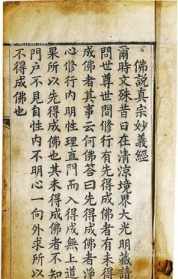 佛說真宗妙義經
爾時文殊昔日在清涼境界大光明藏請
問世尊世間修行有先得成佛者有未得
成佛者其事云何佛答曰先得成佛者淨
心修行內明性理直門而入得成無上道
果所以先得成佛也其未得成佛者不知
門戶不見自性內不明心一向外求所以
不得成佛也